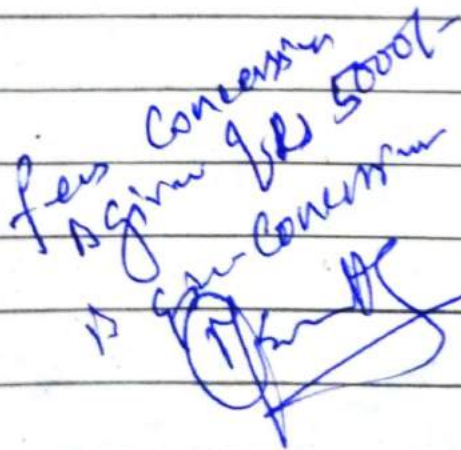 fees concession
is given of Rs 5000/-
is given concession